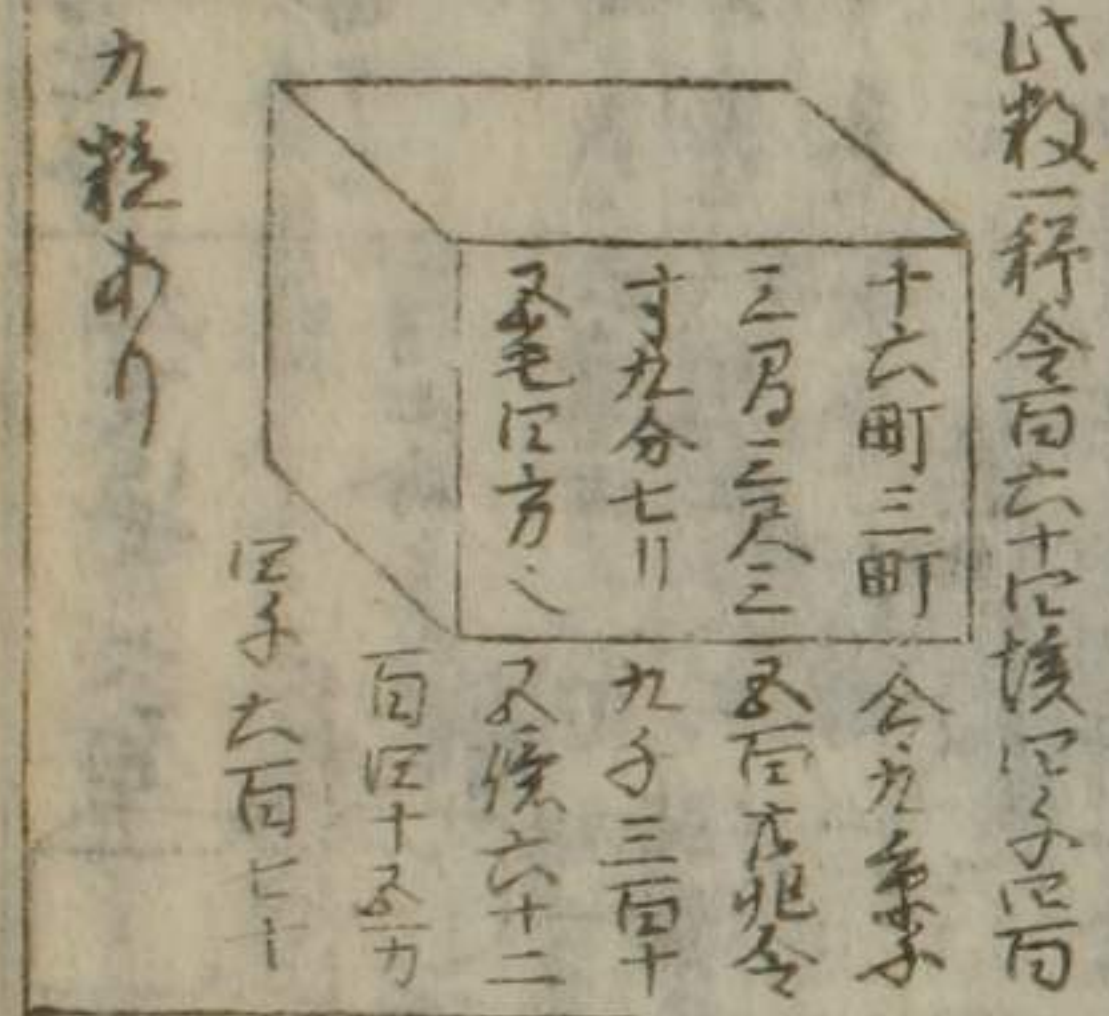 此数一秭令百六十四垓四千四百
十六町三町
三間三尺三
寸九分七リ
五毛四方
令九京
五百六兆令
九千三百十
五億六十二
百四十五万
四千六百七十
九粒あり